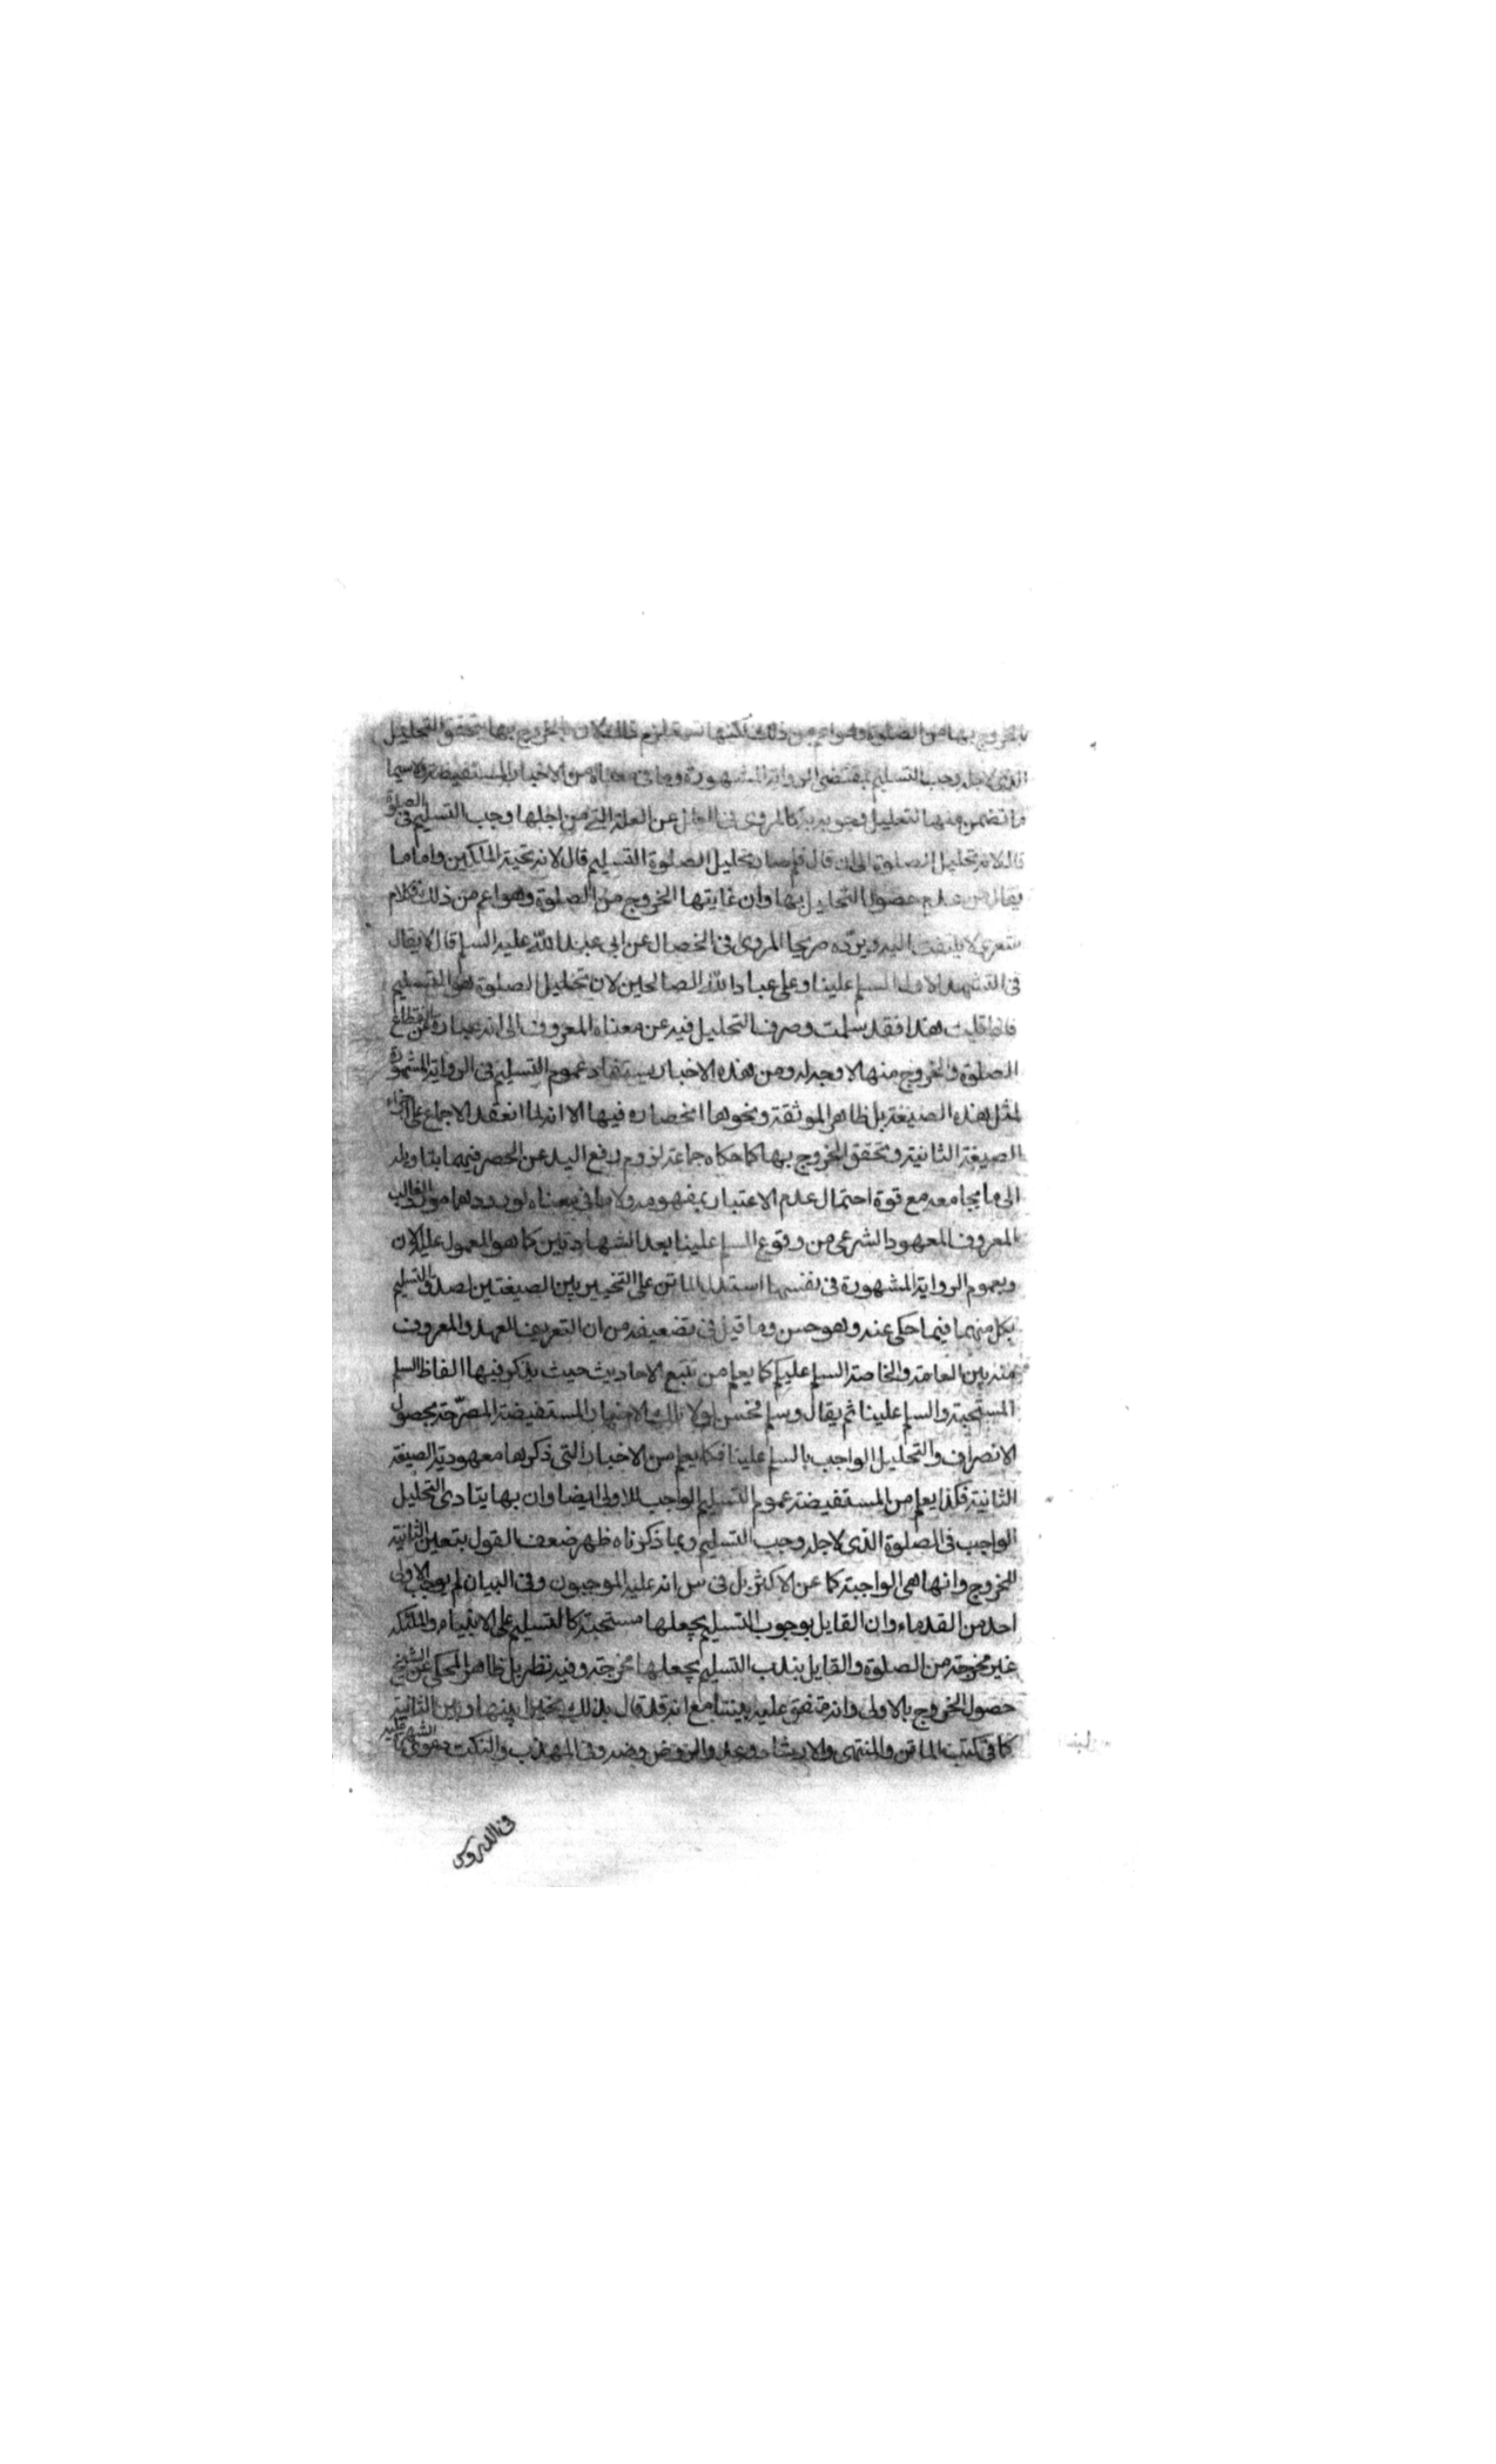 بالخروج بها من الصلوة وهو اعم من ذلك لكنها تستلزم ذلك لان الخروج بها يتحقق التحليل
الذى لاجله وجب التسليم بمقتضى الرواية المشهورة وما فى معناه من الاخبار المستفيضة ولاسيما
ما تضمن منها لتعليل وجوبه به كالمروى فى العلل عن العلة التى من اجلها وجب التسليم فى الصلوة
قال لانه تحليل الصلوة الى ان قال فلم صار تحليل الصلوة التسليم قال لانه تحية الملكين واما ما
يقال من عدم حصول التحليل بها وان غايتها الخروج من الصلوة وهو اعم من ذلك فكلام
شعرى لا يلتفت اليه ويردّه صريحا المروى فى الخصال عن ابى عبد الله عليه السلم قال لا يقال
فى التشهد الاول السلم علينا وعلى عباد الله الصالحين لان تحليل الصلوة هو التسليم
فاذا قلت هذا فقد سلمت وصرف التحليل فيه عن معناه المعروف الى انه عبارة عن انقطاع
الصلوة والخروج منها لا وجه له ومن هذه الاخبار يستفاد عموم التسليم فى الرواية المشهورة
لمثل هذه الصيغة بل ظاهر الموثقة ونحوها انحصاره فيها الا انه لما انعقد الاجماع على اجزاء
الصيغة الثانية وتحقق الخروج بها كما حكاه جماعة لزوم رفع اليد عن الحصر فيها بتاويله
الى ما يجامعه مع قوة احتمال عدم الاعتبار بمفهومه ولا ما فى معناه لورودهما مورد الغالب
المعروف المعهود الشرعى من وقوع السلم علينا بعد الشهادتين كما هو المعمول عليه الان
وبعموم الرواية المشهورة فى نفسها استدل الماتن على التخيير بين الصيغتين لصدق التسليم
بكل منهما فيما حكى عنه وهو حسن وما قيل فى تضعيفه من ان التعريف للعهد والمعروف
منه بين العامة والخاصة السلم عليكم كما يعلم من تتبع الاحاديث حيث يذكر فيها الفاظ السلم
المستحبة والسلم علينا ثم يقال ويسلم فحسن لولا تلك الاخبار المستفيضة المصرّحة بحصول
الانصراف والتحليل الواجب بالسلم علينا فكما يعلم من الاخبار التى ذكرها معهودية الصيغة
الثانية فكذا يعلم من المستفيضة عموم التسليم الواجب للاولى ايضا وان بها يتادى التحليل
الواجب فى الصلوة الذى لاجله وجب التسليم وبما ذكرناه ظهر ضعف القول بتعين الثانية
للخروج وانها هى الواجبة كما عن الاكثر بل فى س انه عليه الموجبون وفى البيان لم يوجب الاولى
احد من القدماء وان القايل بوجوب التسليم يجعلها مستحبة كالتسليم على الانبياء والملئكة
غير مخرجة من الصلوة والقايل بندب التسليم يجعلها مخرجة وفيه نظر بل ظاهر المحكى عن الشيخ
حصول الخروج بالاولى وانه متفق عليه بيننا مع انه قد قال بذلك مخيرا بينها وبين الثانية
كما فى كتب الماتن والمنتهى والارشاد وعد والروض وضه وفى المهذب والنكت دعوى الشهرة عليه
فى الدروس